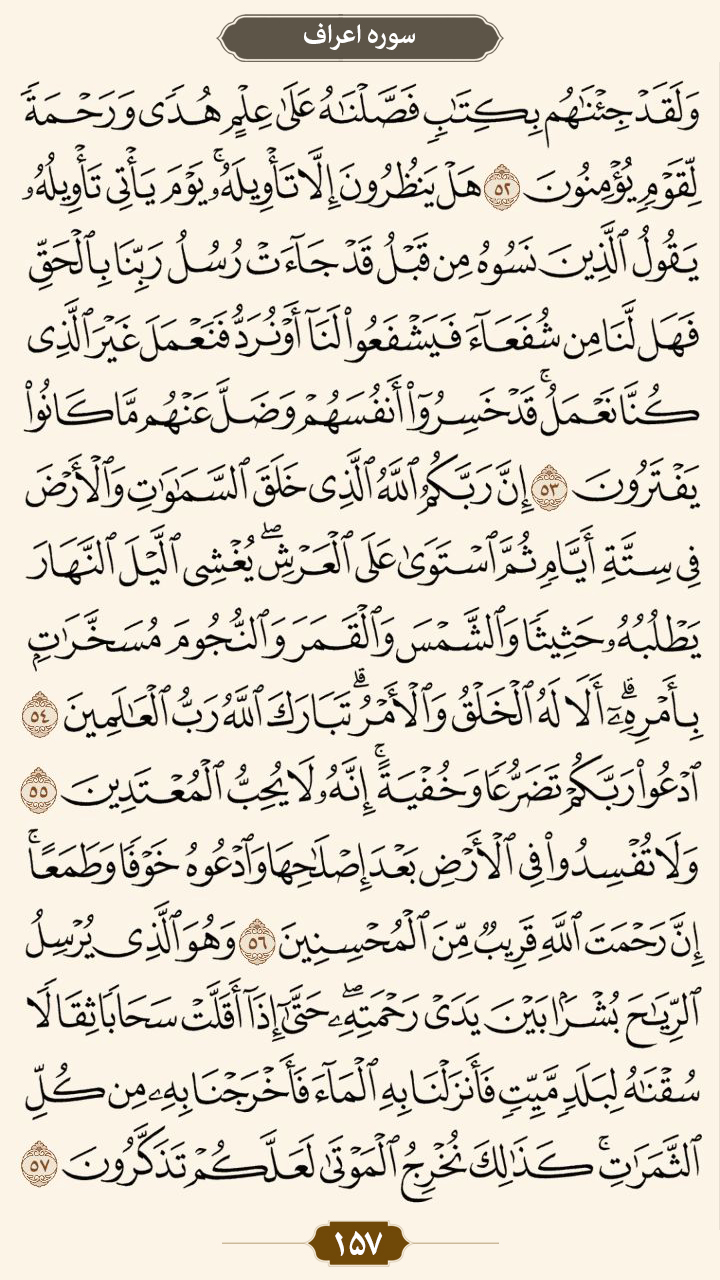 سوره اعراف
وَلَقَدْ جِئْنَٰهُم بِكِتَٰبٍ فَصَّلْنَٰهُ عَلَىٰ عِلْمٍ هُدًى وَرَحْمَةً
لِّقَوْمٍ يُؤْمِنُونَ ٥٢ هَلْ يَنظُرُونَ إِلَّا تَأْوِيلَهُۥ ۚ يَوْمَ يَأْتِى تَأْوِيلُهُۥ
يَقُولُ ٱلَّذِينَ نَسُوهُ مِن قَبْلُ قَدْ جَآءَتْ رُسُلُ رَبِّنَا بِٱلْحَقِّ
فَهَل لَّنَا مِن شُفَعَآءَ فَيَشْفَعُوا۟ لَنَآ أَوْ نُرَدُّ فَنَعْمَلَ غَيْرَ ٱلَّذِى
كُنَّا نَعْمَلُ ۚ قَدْ خَسِرُوٓا۟ أَنفُسَهُمْ وَضَلَّ عَنْهُم مَّا كَانُوا۟
يَفْتَرُونَ ٥٣ إِنَّ رَبَّكُمُ ٱللَّهُ ٱلَّذِى خَلَقَ ٱلسَّمَٰوَٰتِ وَٱلْأَرْضَ
فِى سِتَّةِ أَيَّامٍ ثُمَّ ٱسْتَوَىٰ عَلَى ٱلْعَرْشِ ۖ يُغْشِى ٱلَّيْلَ ٱلنَّهَارَ
يَطْلُبُهُۥ حَثِيثًا وَٱلشَّمْسَ وَٱلْقَمَرَ وَٱلنُّجُومَ مُسَخَّرَٰتٍۭ
بِأَمْرِهِۦٓ ۗ أَلَا لَهُ ٱلْخَلْقُ وَٱلْأَمْرُ ۗ تَبَارَكَ ٱللَّهُ رَبُّ ٱلْعَٰلَمِينَ ٥٤
ٱدْعُوا۟ رَبَّكُمْ تَضَرُّعًا وَخُفْيَةً ۚ إِنَّهُۥ لَا يُحِبُّ ٱلْمُعْتَدِينَ ٥٥
وَلَا تُفْسِدُوا۟ فِى ٱلْأَرْضِ بَعْدَ إِصْلَٰحِهَا وَٱدْعُوهُ خَوْفًا وَطَمَعًا ۚ
إِنَّ رَحْمَتَ ٱللَّهِ قَرِيبٌ مِّنَ ٱلْمُحْسِنِينَ ٥٦ وَهُوَ ٱلَّذِى يُرْسِلُ
ٱلرِّيَٰحَ بُشْرًۢا بَيْنَ يَدَىْ رَحْمَتِهِۦ ۖ حَتَّىٰٓ إِذَآ أَقَلَّتْ سَحَابًا ثِقَالًا
سُقْنَٰهُ لِبَلَدٍ مَّيِّتٍ فَأَنزَلْنَا بِهِ ٱلْمَآءَ فَأَخْرَجْنَا بِهِۦ مِن كُلِّ
ٱلثَّمَرَٰتِ ۚ كَذَٰلِكَ نُخْرِجُ ٱلْمَوْتَىٰ لَعَلَّكُمْ تَذَكَّرُونَ ٥٧
۱۵۷